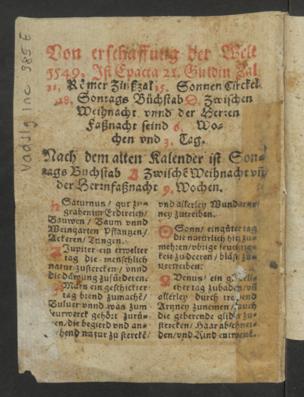 Von erschaffung der Welt
5549. Jst Epacta 21. Guldin Zal
21, Römer Zinßzal 15. Sonnen Circkel
18. Sontags Bůchstab D. Zwischen
Weihnacht vnnd der Herren
Faßnacht seind 6. Wo-
chen vnd 3. Tag.
Nach dem alten Kalender ist Son-
tags Buchstab A Zwischē Weihnacht vñ
der Herrnfaßnacht 9. Wochen.
Saturnus / gut zu-
graben im Erdtreich /
Bauwen / Baum vnnd
Weingarten Pflantzen /
Ackeren / Tungen.
Jupiter ein erwelter
tag die menschlich
natur zustercken / vnnd
die däwung zufürderen.
Mars ein geschickter
tag brend zumachē /
Buluer vnnd was zum
feurwerck gehört zurü-
sten / die begierd vnd an-
hend natur zu sterckē /
vnd allerley Wundartz-
ney zutreiben.
Sonn / ein gůter tag
die natürlich hitz zu-
mehren / vbrige feuchtig-
keit zuderren / bläst zu-
vertreiben.
Venus / ein
ter tag zubaden / vñ
allerley durch
Artzney zunemen / auch
die geberende glider zu-
stercken / Haar abschnei-
den / vnd Kind entwenē.
Vadslg Inc 985 E